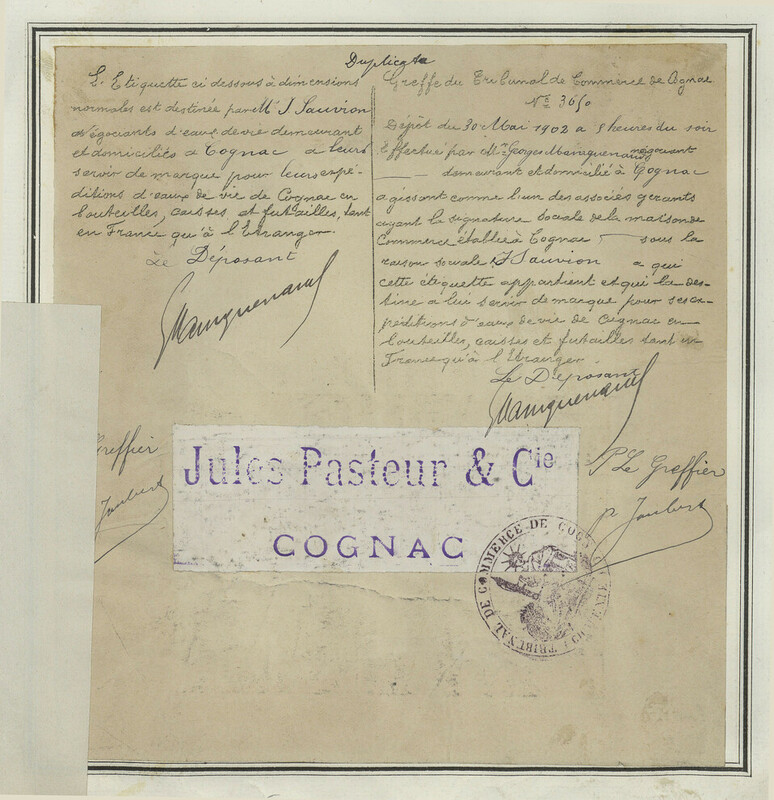 Duplicata
L'Etiquette ci dessous à dimensions
normales est destinée par Mr J. Sauvion
négociants d'eaux de vie demeurant
et domiciliés à Cognac à leurs
servir de marque pour leurs expé-
ditions d'eaux de vie de Cognac en
bouteilles, caisses et futailles, tant
en France qu'à l'Etranger.
Le Déposant
GManiquenaud
Greffe du Tribunal de Commerce de Cognac
No 3650
Dépôt du 30 Mai 1902 à 5 heures du soir
Effectué par Mr Georges Maniquenaud négociant
demeurant et domicilié à Cognac
agissant comme l'un des associés gerants
ayant la signature sociale de la maison de
Commerce établie à Cognac sous la
raison sociale J Sauvion à qui
cette étiquette appartient et qui la des-
tine a lui servir de marque pour ses ex-
péditions d'eaux de vie de Cognac en
bouteilles, caisses et futailles tant en
France qu'à l'Etranger.
Le Déposant
GManiquenaud
Greffier
Joubert
Pr Le Greffier
p Joubert
Jules Pasteur & Cie
COGNAC
TRIBUNAL DE COMMERCE DE COGNAC